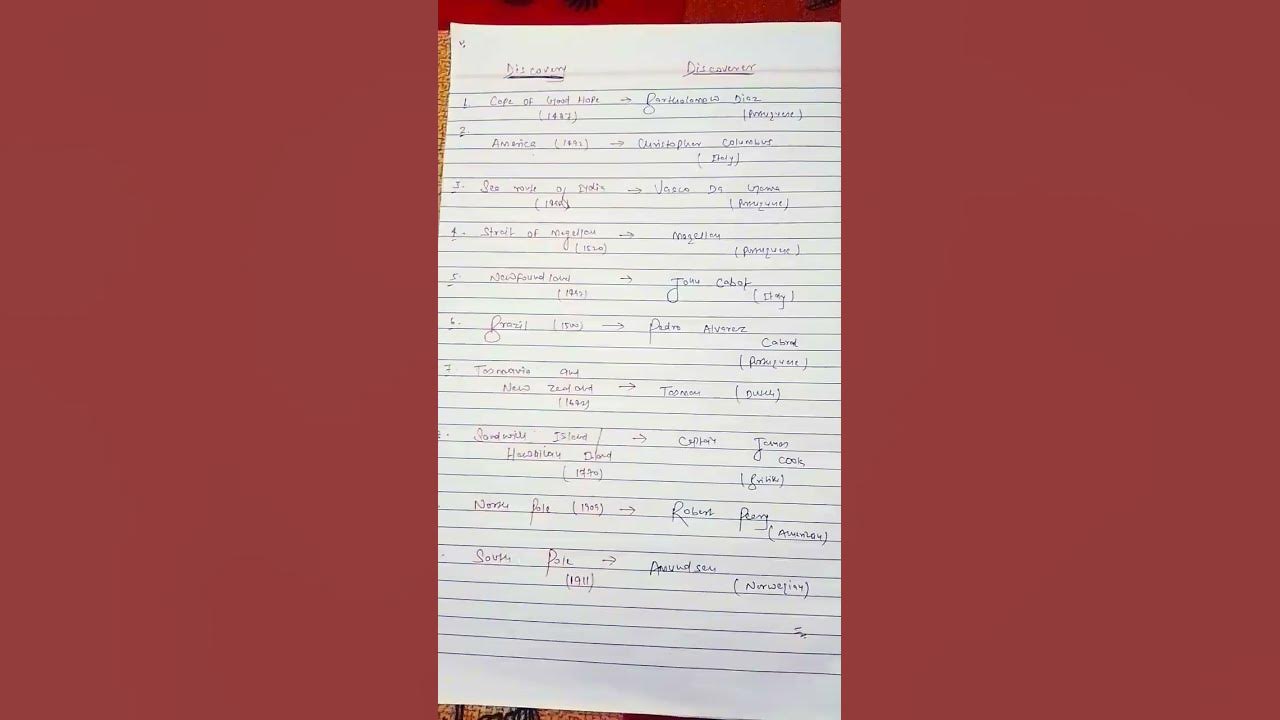 Discovery Discoverer
1. Cape of Good Hope → Bartholomow Diaz
(1487) (Portuguese)
2.
America (1492) → Christopher Columbus
(Italy)
3. Sea route of India → Vasco Da Gama
(Portuguese)
4. Strait of Magellan → Magellan
(1520) (Portuguese)
5. Newfoundland → John Cabot
(1497) (Italy)
6. Brazil (1500) → Pedro Alvarez
Cabral
(Portuguese)
7. Tasmania and
New Zealand → Tasman (Dutch)
(1642)
Sandwich Island / → Captain James
Hawaiian Island Cook
(1770) (British)
North Pole (1909) → Robert Peary
(American)
South Pole → Amundsen
(1911) (Norwegian)